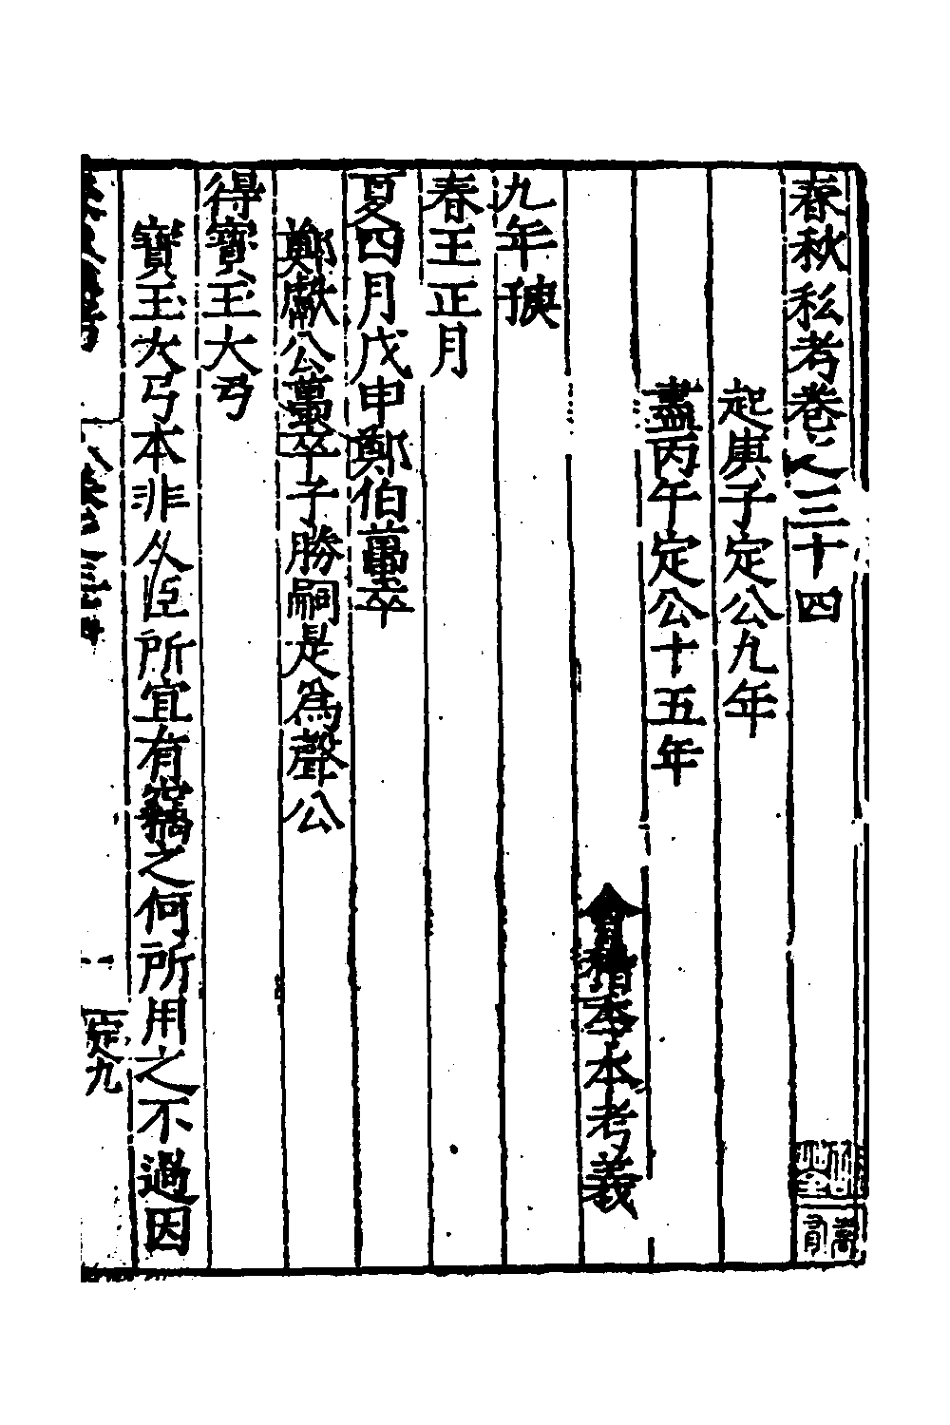 春秋私考卷之三十四
起庚子定公九年
盡丙午定公十五年
會稽季本考義
九年
春王正月
夏四月戊申鄭伯蠆卒
鄭獻公蠆卒子勝嗣是為聲公
得寶玉大弓
寶玉大弓本非人臣所宜有竊之何所用之不過因
定九